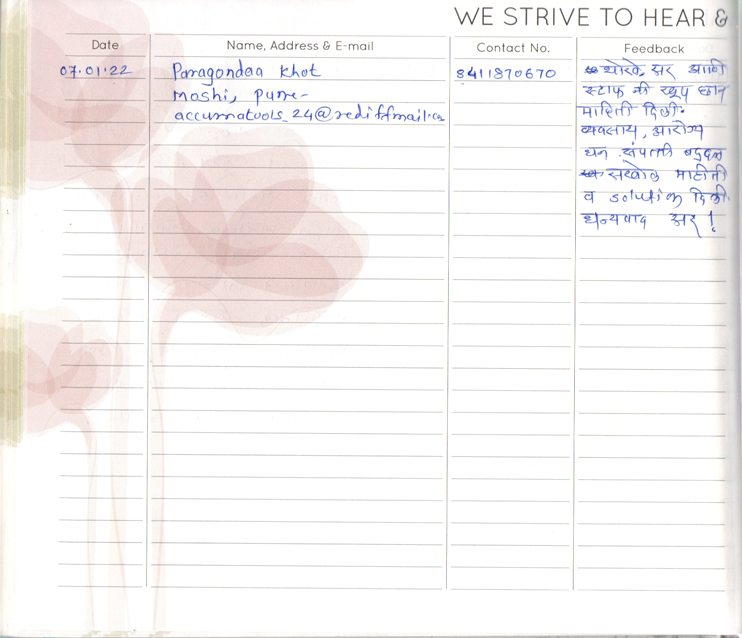 WE STRIVE TO HEAR &
Date Name, Address & E-mail Contact No. Feedback
07.01.22 Paragondaa Khot 8411870670 थोरवे, सर आणि
Moshi, Pune- स्टाफ नी खूप छान
accurnatools_24@rediffmail.co माहिती दिली.
व्यवसाय, आरोग्य
धन संपत्ती बद्दल
सखोल माहीती
व solution दिली.
धन्यवाद सर !